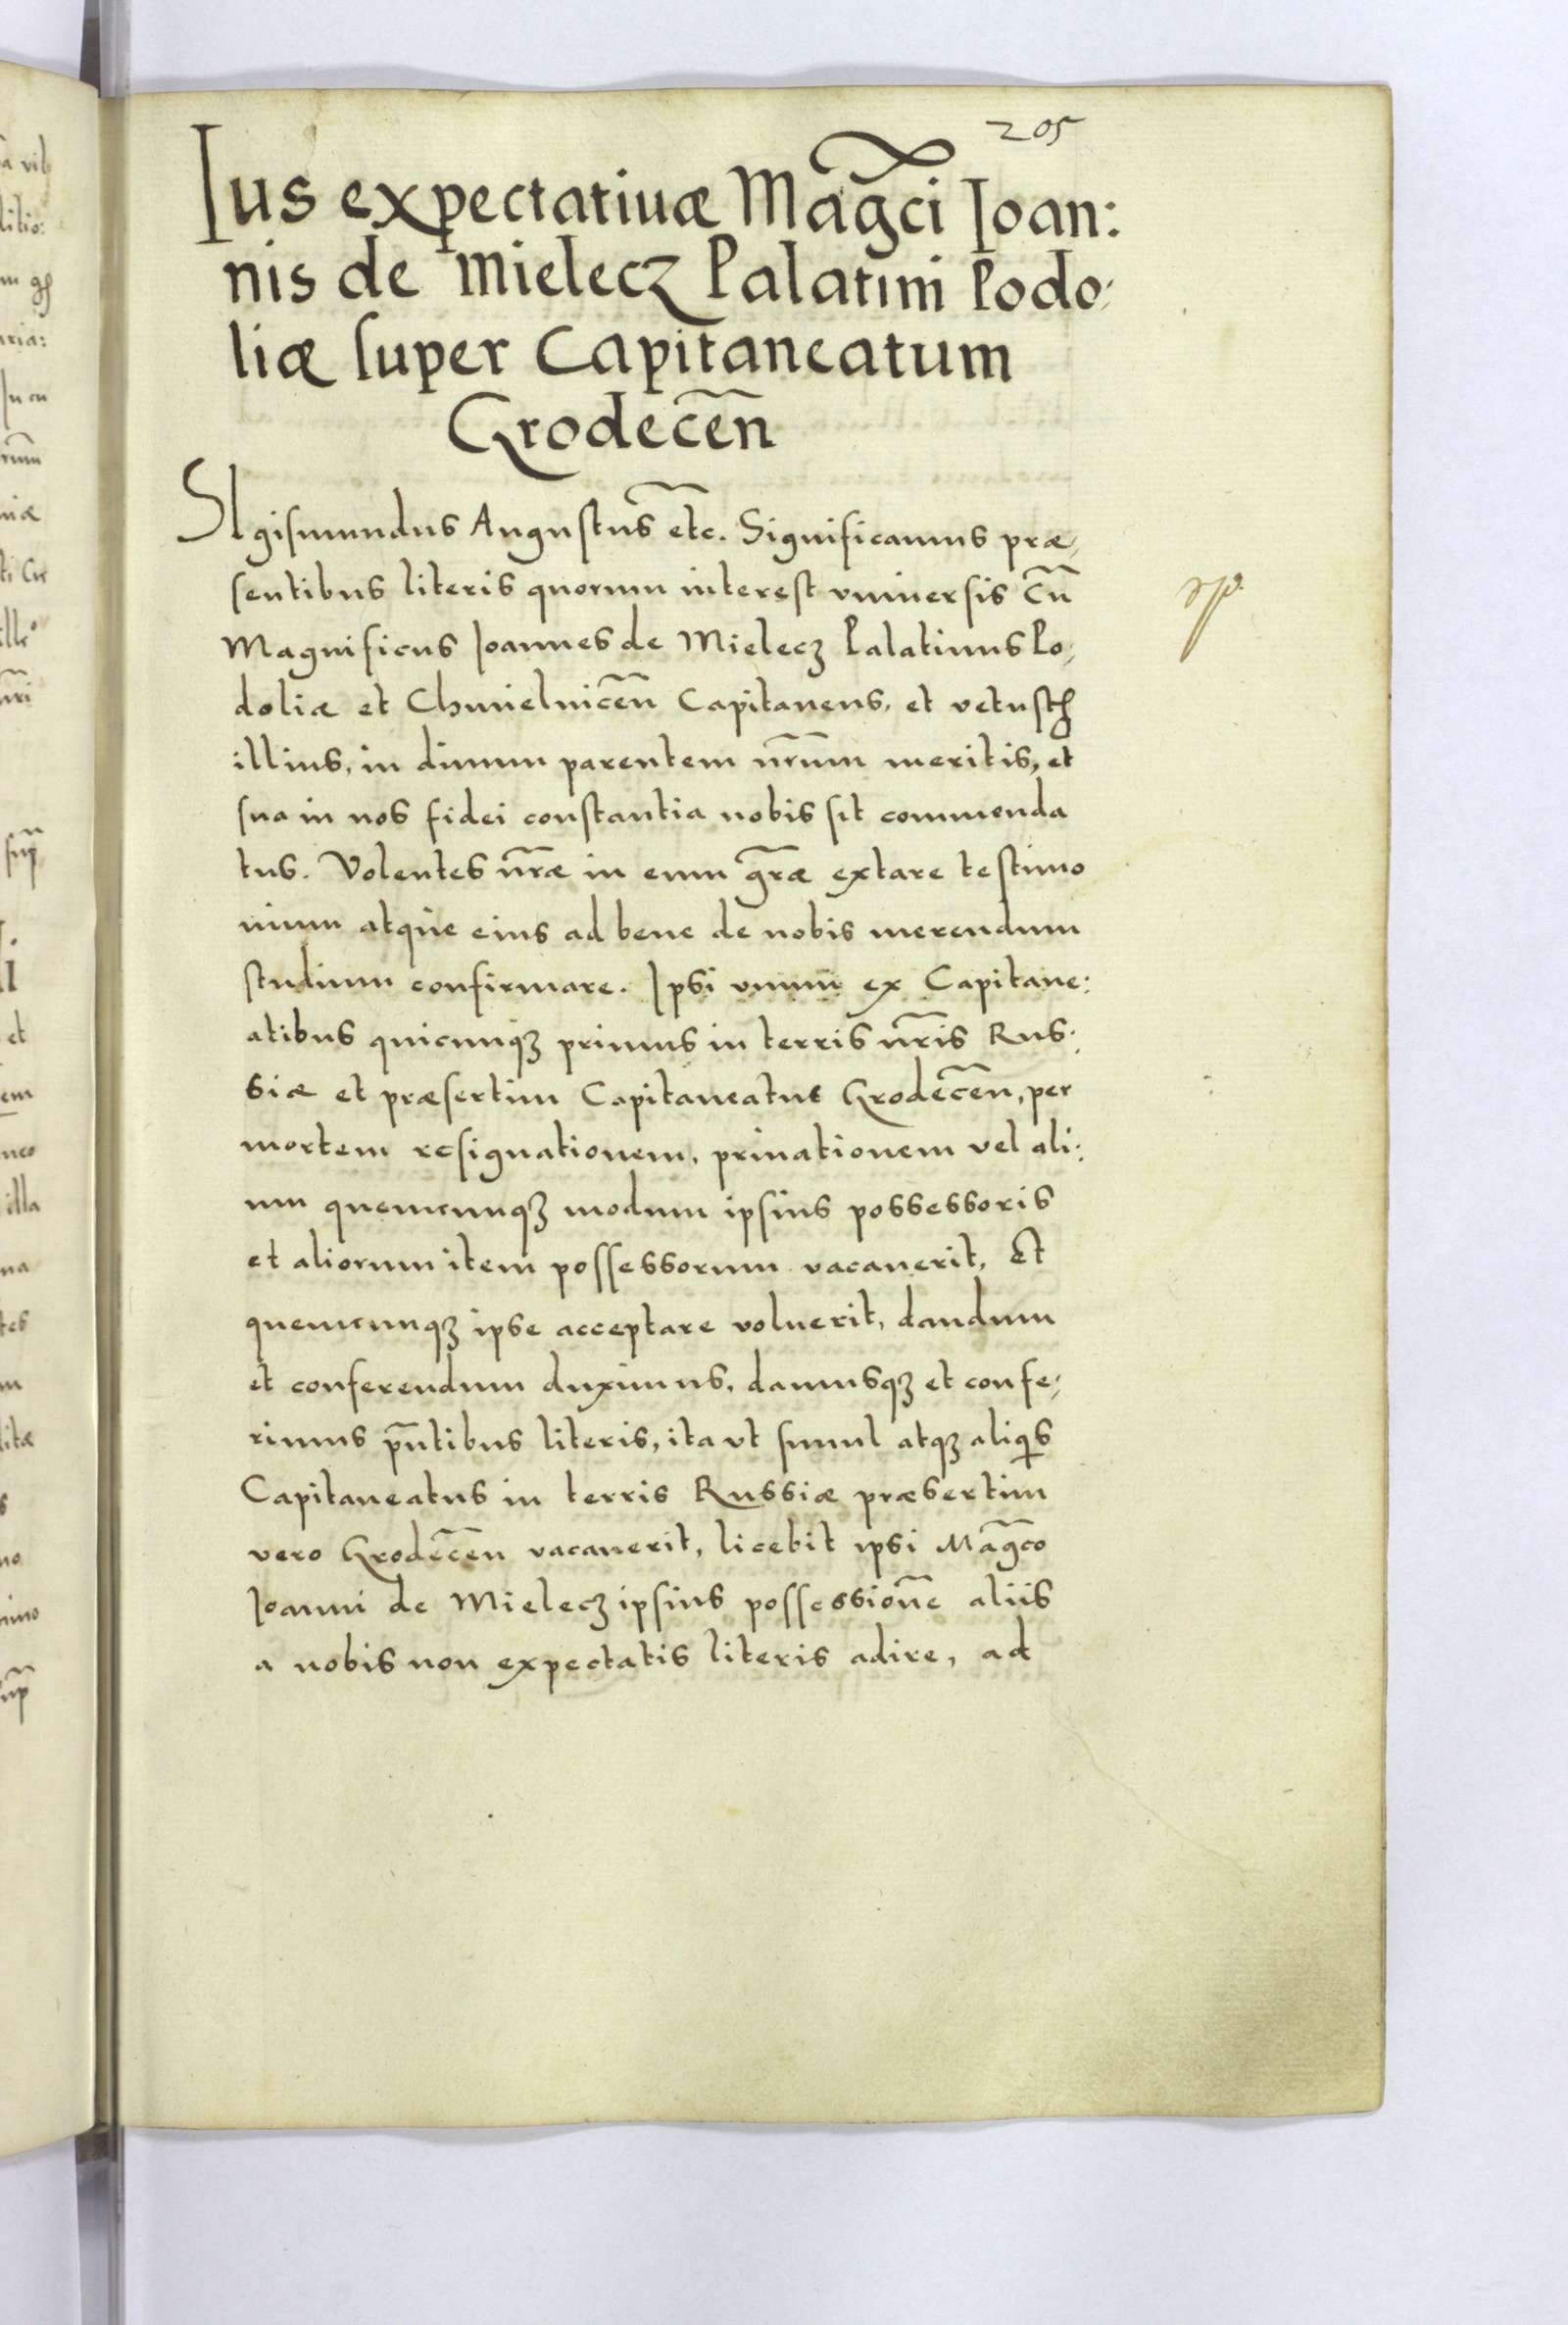 205
Ius expectatiuæ Mag̃ci Ioan:
nis de Mielecz Palatini Podo:
liæ super Capitaneatum
Grodeceñ
SIgismundus Augustus etc̃. Significamus præ,
sentibus literis quorum interest vniuersis Cũ
Magnificus Ioannes de Mielecz Palatinus Po,
doliæ et Chmielniceñ Capitaneus, et vetustis
illius, in diuum parentem nr̃um meritis, et
sua in nos fidei constantia nobis sit commenda
tus. Volentes nr̃æ in eum gr̃æ extare testimo
nium atque eius ad bene de nobis merendum
studium confirmare. Ipsi vnum ex Capitane:
atibus quicunqꝫ primus in terris nr̃is Rus:
siæ et præsertim Capitaneatus Grodeceñ, per
mortem resignationem, priuationem vel ali:
um quemcunqꝫ modum ipsius possessoris
et aliorum item possessorum vacauerit, Et
quemcunqꝫ ipse acceptare voluerit, dandum
et conferendum duximus, damusqꝫ et confe,
rimus pñtibus literis, ita vt simul atqꝫ aliqis
Capitaneatus in terris Russiæ præsertim
vero Grodeceñ vacauerit, licebit ipsi Mag̃co
Ioanni de Mielecz ipsius possessionẽ aliis
a nobis non expectatis literis adire, ad